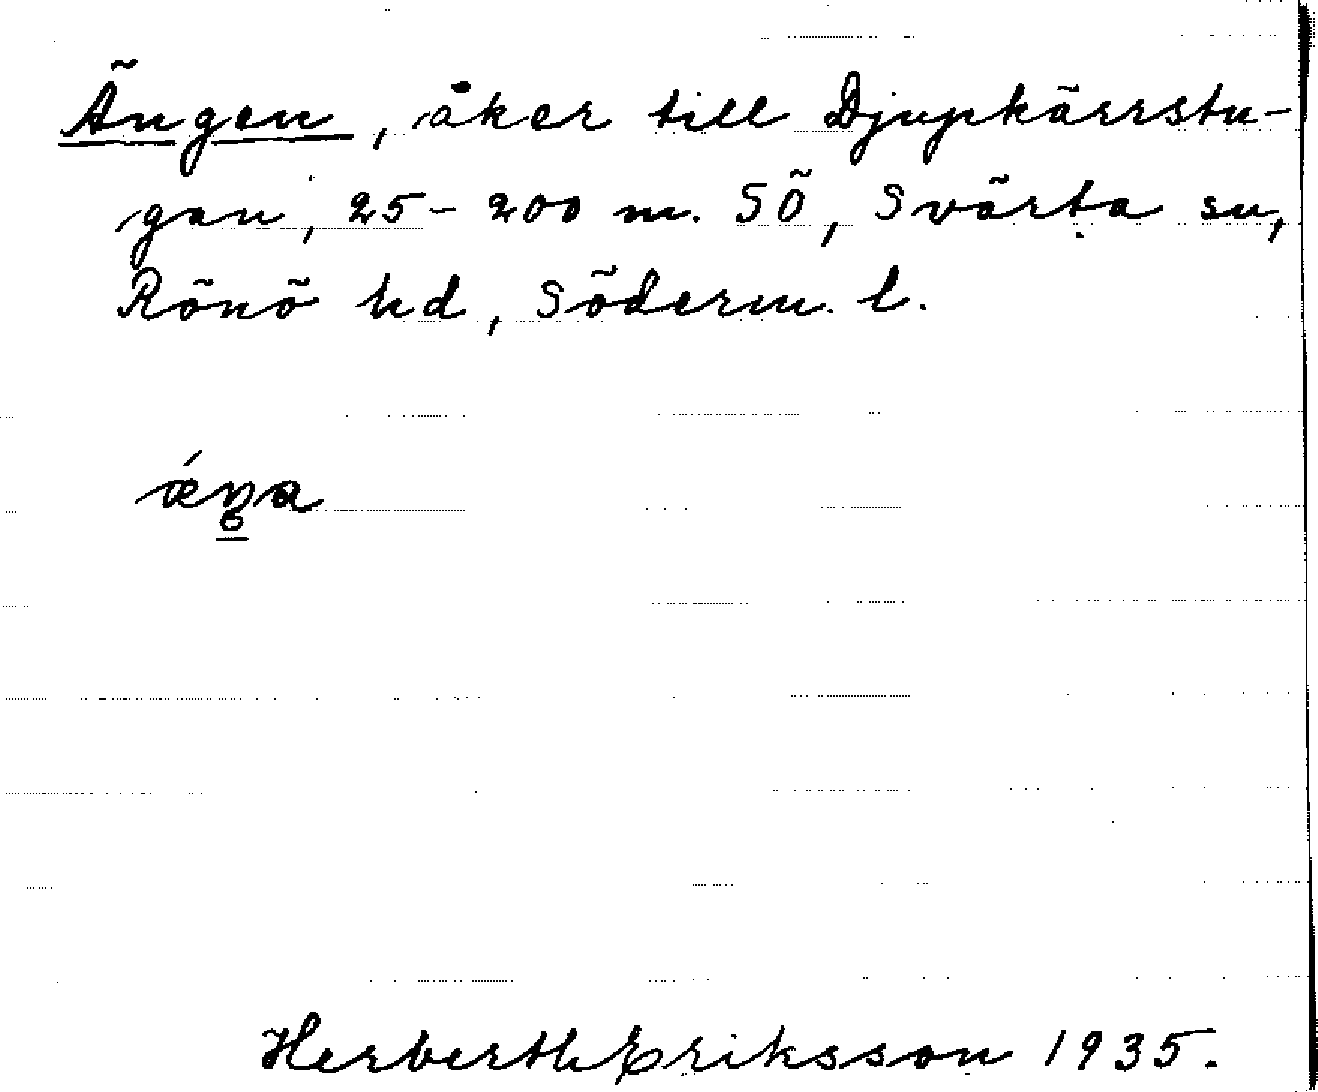 Ängen, åker till Djupkärrstu-
gan, 25-200 m. SÖ, Svärta sn,
Rönö hd, Söderm. l.
Herberth Eriksson 1935.